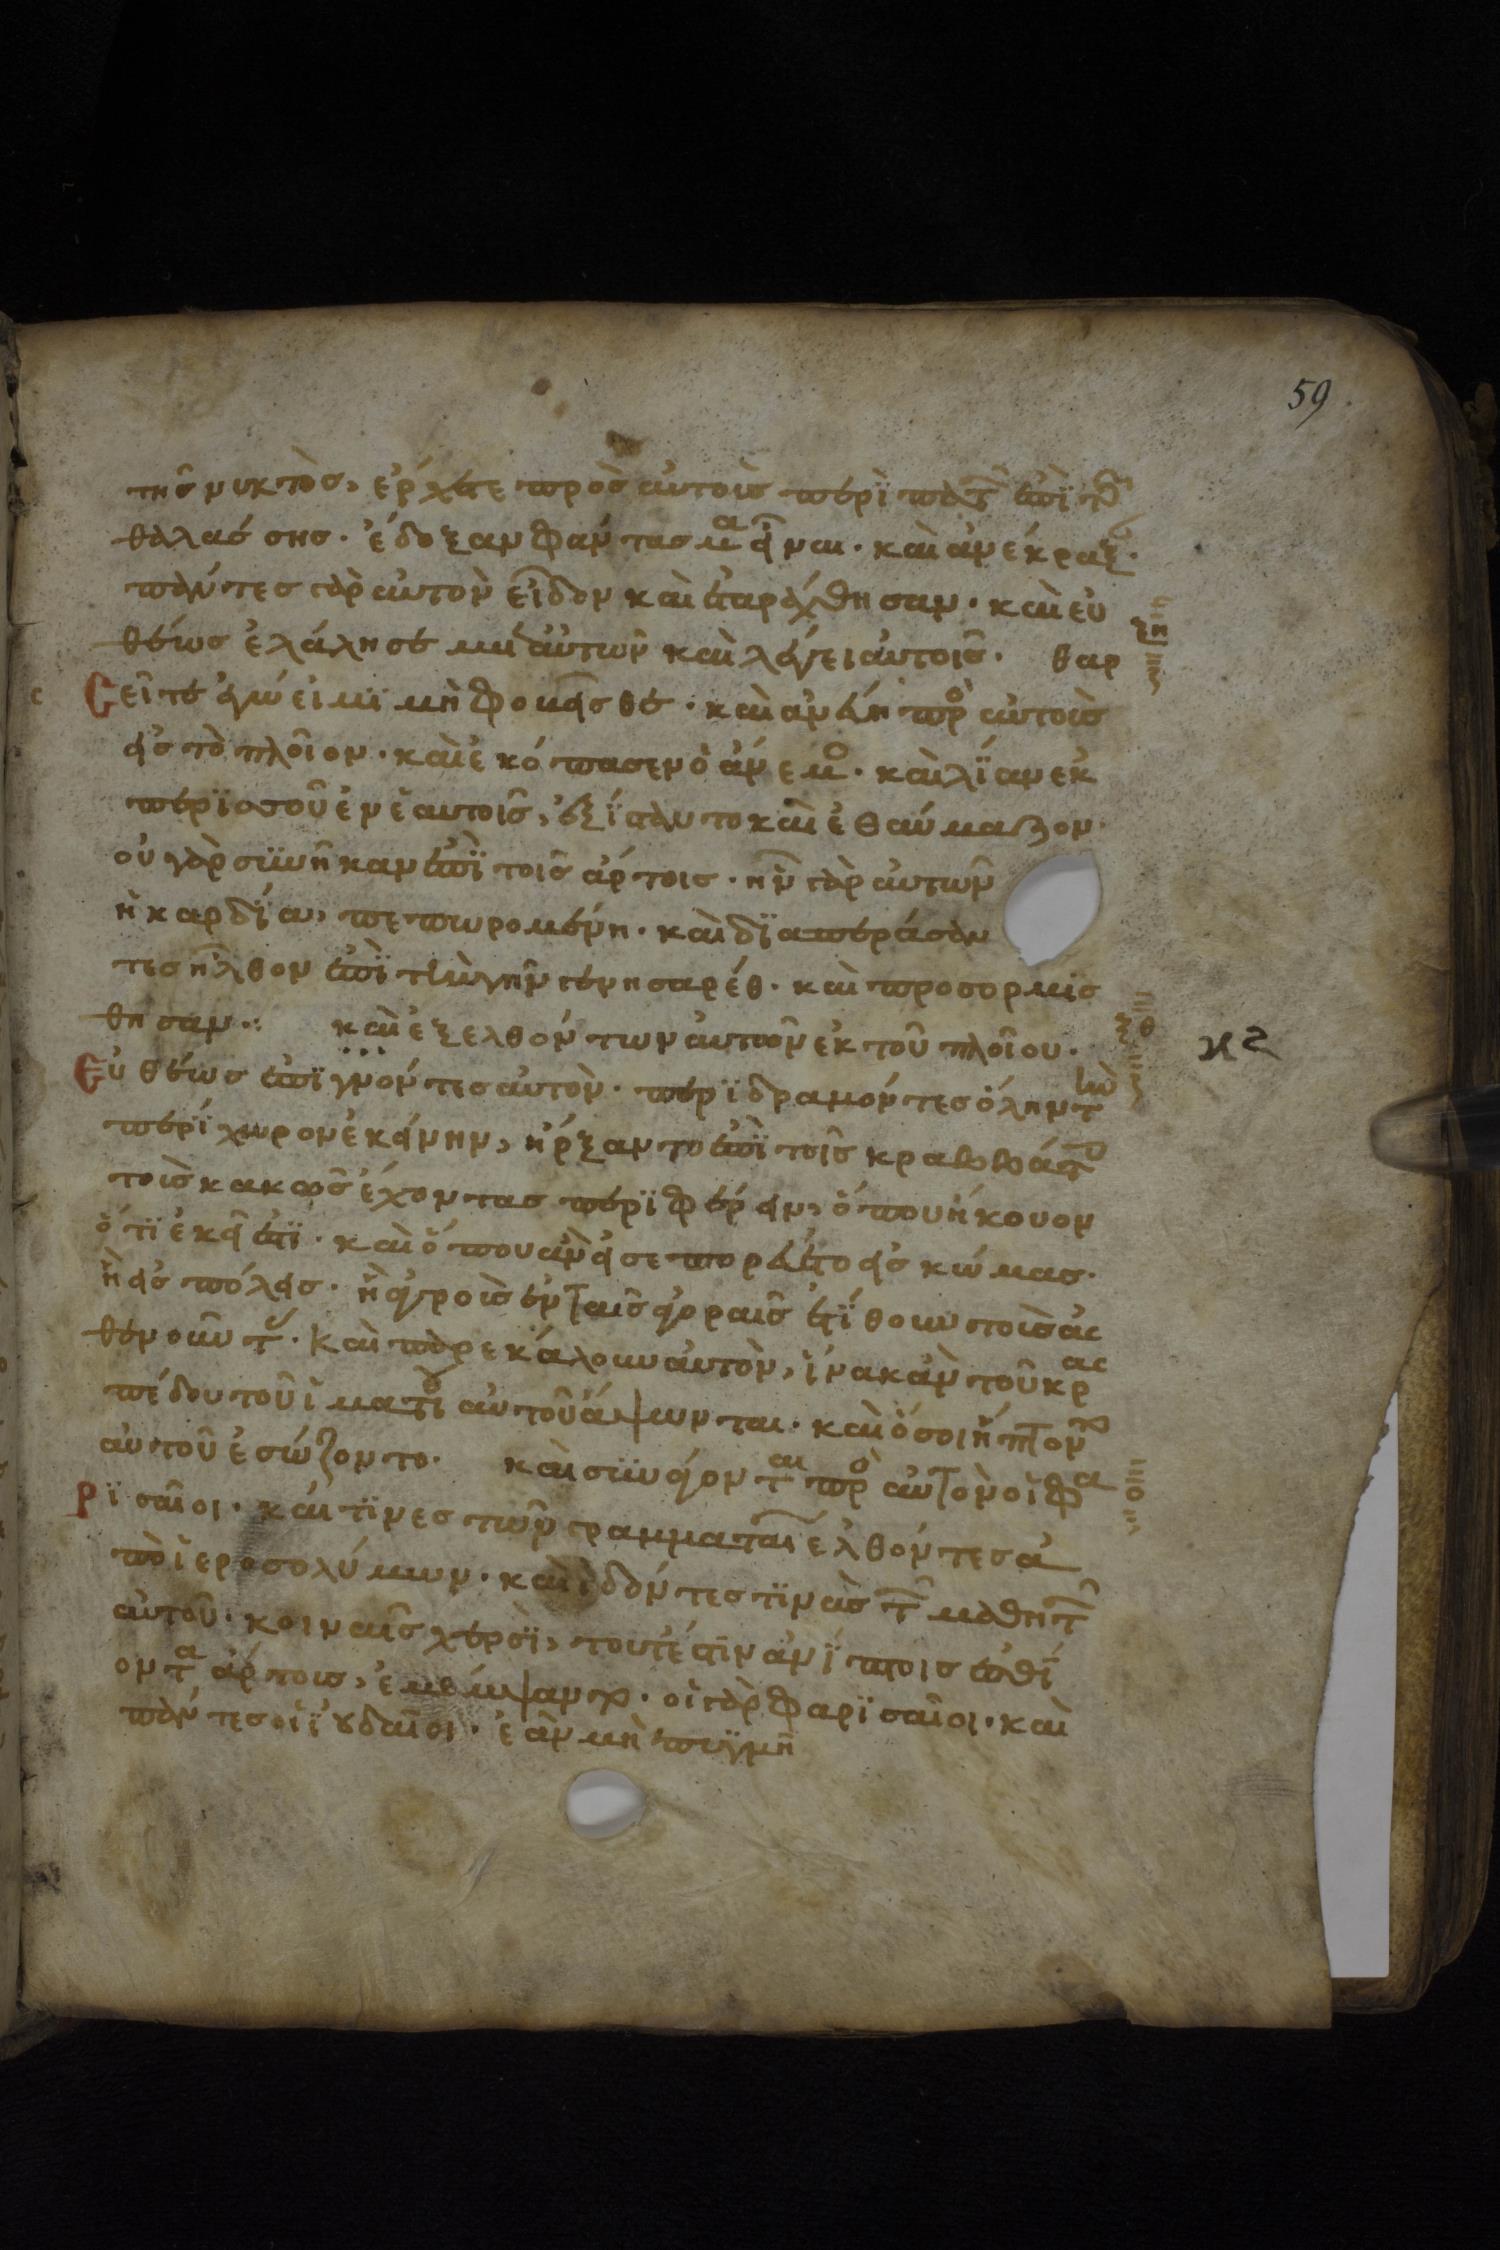 59
τῆς νυκτὸς, ἐρχεται πρὸς αὐτοὺς περϊπατ ἐπὶ τ
θαλάσσης· ἔδοξαν φάντασμα εἶναι· καὶ ἀνέκραξ·
πάντες γὰρ αὐτὸν εἶδον καὶ ἐταράχθησαν· καὶ εὐ
θέως ἐλάλησε μετ αὐτῶν καὶ λέγει αὐτοῖς· θαρ
ξη
σεῖτε ἐγώ εἰμϊ μὴ φοβεῖσθε· καὶ ἀνέβη πρὸ αὐτοὺς
εἰς τὸ πλοῖον· καὶ ἐκόπασεν ὁ ἄνεμο· καὶ λΐαν ἐκ
περϊσσοῦ ἐν ἑαυτοῖς, ἐξΐσταντο καὶ ἐθαύμαζον·
οὐ γὰρ σϋνῆκαν ἐπῒ τοῖς ἄρτοις· ἦν γὰρ αὐτῶν
ἡ καρδΐα, πεπωρομένη· καὶ δϊαπεράσαν
τες ἦλθον ἐπῒ τὴν γῆν γενησαρέθ· καὶ προσορμΐσ
θησαν· καὶ ἐξελθόντων αὐτῶν ἐκ τοῦ πλοῖου·
ξθ
κς
Εὐθέως ἐπϊγνόντες αὐτὸν· περϊδραμόντες ὅλην τὴν
περΐχωρον ἐκείνην, ἤρξαντο ἐπῒ τοῖς κραββάτ
τοὺς κακῶς ἔχοντας περϊφέρειν, ὅπου ἤκουον
ὅτϊ ἐκεῖ ἐστϊ· καὶ ὅπου ἂν εἰσεπορεύετο εἰς κώμας·
ἢ εἰς πόλεις· ἢ ἀγροὺς ἐν ταῖς ἀγοραῖς ἐτΐθουν τοὺς ἀσ
θενοῦντ· Καὶ παρεκάλουν αὐτὸν, ἵνα κἂν τοῦ κρασ
πέδου τοῦ ἱματΐου αὐτοῦ ἅψωνται· καὶ ὅσοι ἥπτοντο
αὐτοῦ ἐσώζοντο· καὶ σϋνάγονται πρὸ αὐτὸν οἱ φα
ο
ρϊσαῖοι· καὶ τϊνες τῶν γραμματαί ἐλθόντες ἀ
πὸ ἱεροσολύμων· καὶ ἰδόντες τϊνὰς τ μαθητ
αὐτοῦ· κοιναῖς χερσϊ, τουτέστιν ἀνΐπτοις ἐσθΐ
οντα ἄρτοις, ἐμέμψαντο· οἱ γὰρ φαρϊσαῖοι· καὶ
πάντες οἱ ϊουδαῖοι· ἐὰν μὴ πϋγμῇ